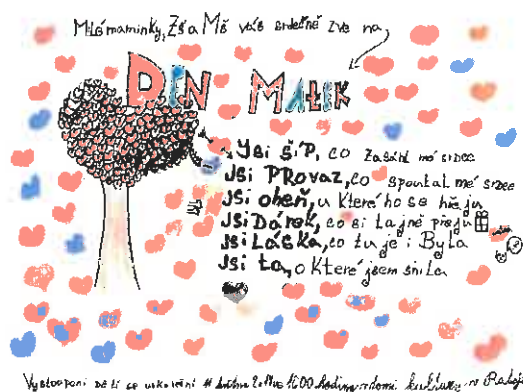 Milé maminky, ZŠ a MŠ vás srdečně zve na
DEN MATEK
Jsi šíp, co zasáhl mé srdce
Jsi PRovaz, co spoutal mé srdce
Jsi oheň, u kterého se hřeju
Jsi Dárek, co si tajně přeju
Jsi Láska, co tu je i Byla
Jsi ta, o které jsem snila
Vystoupení dětí se uskuteční 16:00 hodin v domě kultury v